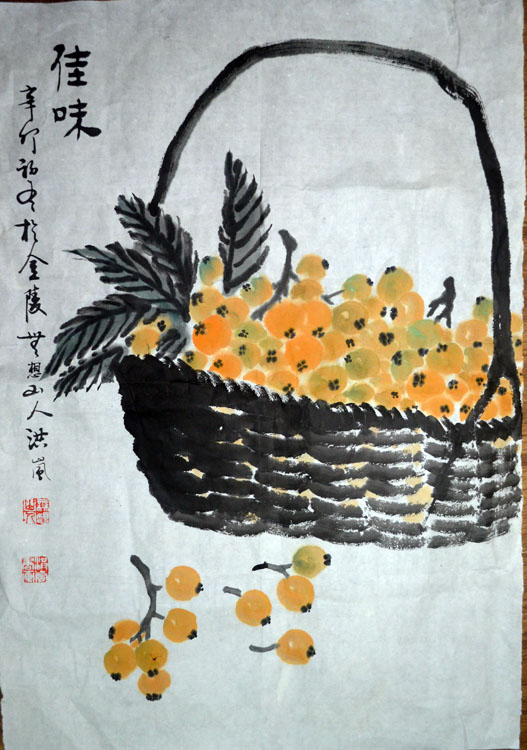 佳味
辛卯初冬於金陵無想山人洪嵐